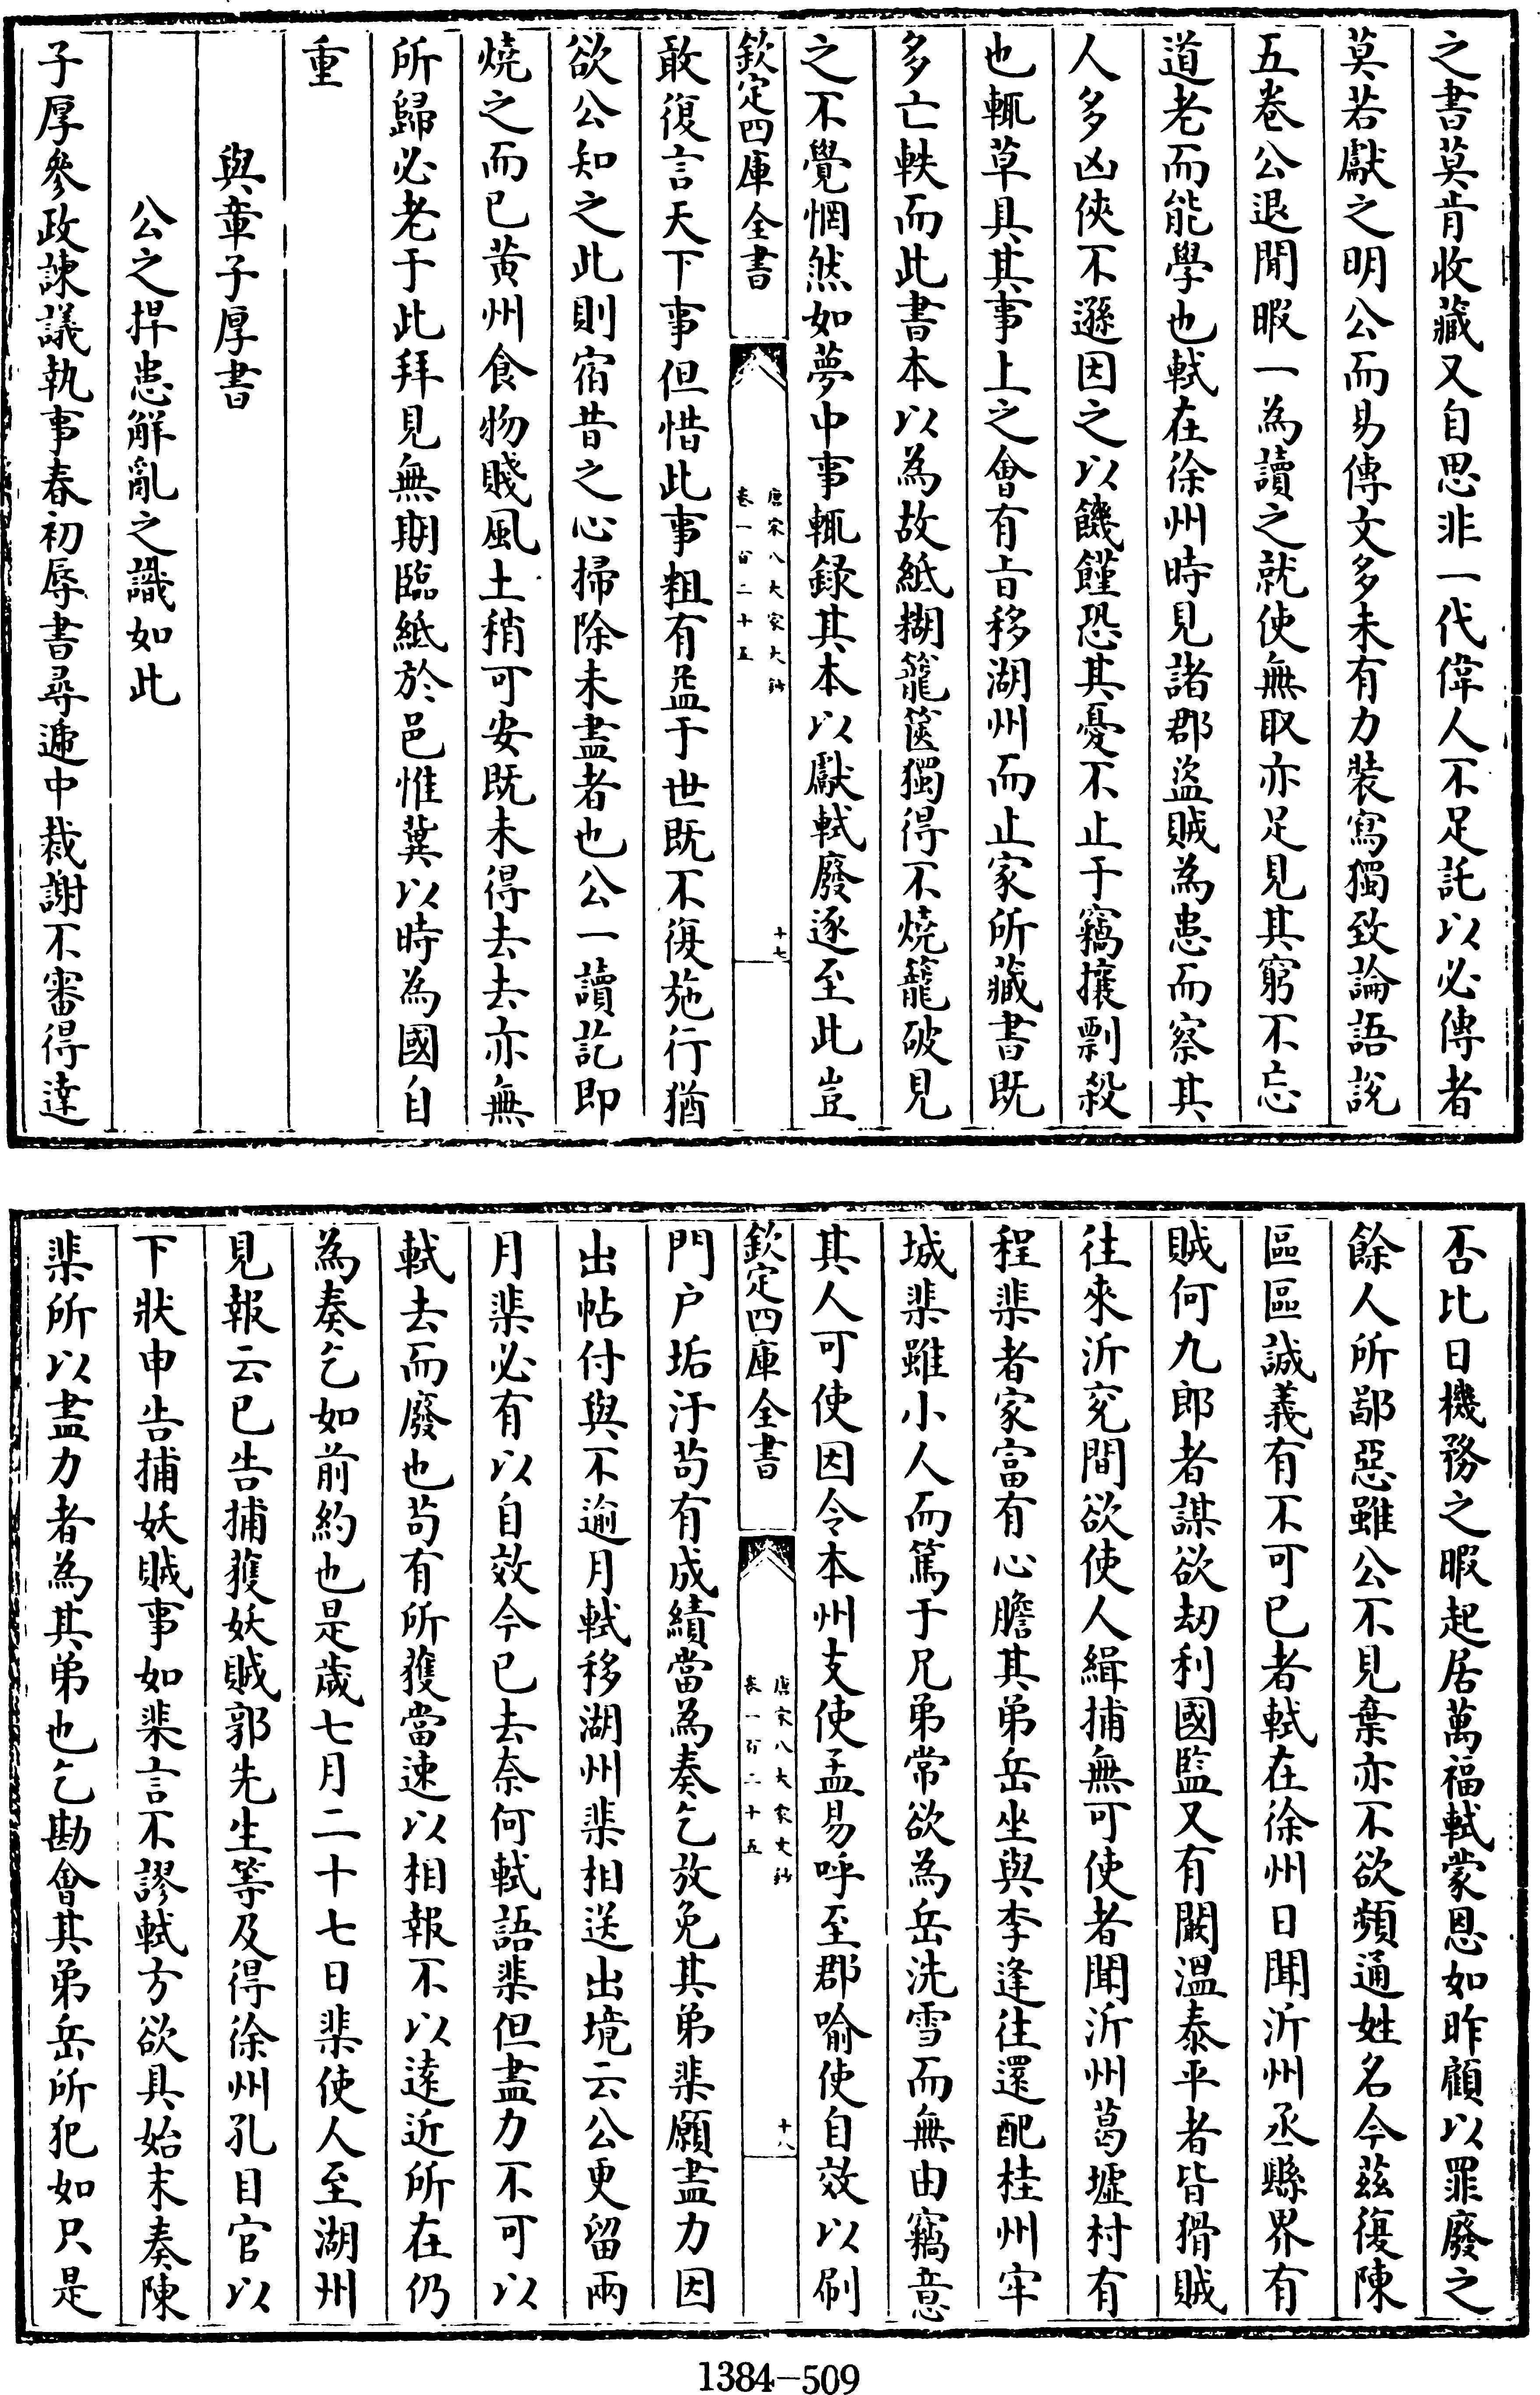 之書莫肯收藏又自思非一代偉人不足託以必傳者
莫若獻之明公而易傳文多未有力裝寫獨致論語說
五卷公退閒暇一為讀之就使無取亦足見其窮不忘
道老而能學也軾在徐州時見諸郡盜賊為患而察其
人多凶俠不遜因之以饑饉恐其憂不止于竊攘剽殺
也輒草具其事上之會有旨移湖州而止家所藏書既
多亡軼而此書本以為故紙糊籠篋獨得不燒籠破見
之不覺惘然如夢中事輒錄其本以獻軾廢逐至此豈
欽定四庫全書
唐宋八大家文鈔
卷一百二十五
十七
敢復言天下事但惜此事粗有益于世既不復施行猶
欲公知之此則宿昔之心掃除未盡者也公一讀訖即
燒之而已黃州食物賤風土稍可安既未得去去亦無
所歸必老于此拜見無期臨紙於邑惟冀以時為國自
重
與章子厚書
公之捍患解亂之識如此
子厚參政諫議執事春初辱書尋遞中裁謝不審得達
否比日機務之暇起居萬福軾蒙恩如昨顧以罪廢之
餘人所鄙惡雖公不見棄亦不欲頻通姓名今茲復陳
區區誠義有不可已者軾在徐州日聞沂州丞縣界有
賊何九郎者謀欲劫利國監又有闞溫秦平者皆猾賊
往來沂兗間欲使人緝捕無可使者聞沂州葛墟村有
程棐者家富有心膽其弟岳坐與李逢往還配桂州牢
城棐雖小人而篤于兄弟常欲為岳洗雪而無由竊意
其人可使因令本州支使孟易呼至郡喻使自效以刷
欽定四庫全書
唐宋八大家文鈔
卷一百二十五
十八
門户垢汙苟有成績當為奏乞放免其弟棐願盡力因
出帖付與不逾月軾移湖州棐相送出境云公更留兩
月棐必有以自效今已去奈何軾語棐但盡力不可以
軾去而廢也苟有所獲當速以相報不以遠近所在仍
為奏乞如前約也是歲七月二十七日棐使人至湖州
見報云已告捕獲妖賊郭先生等及得徐州孔目官以
下狀申告捕妖賊事如棐言不謬軾方欲具始末奏陳
棐所以盡力者為其弟也乞勘會其弟岳所犯如只是
1384-509